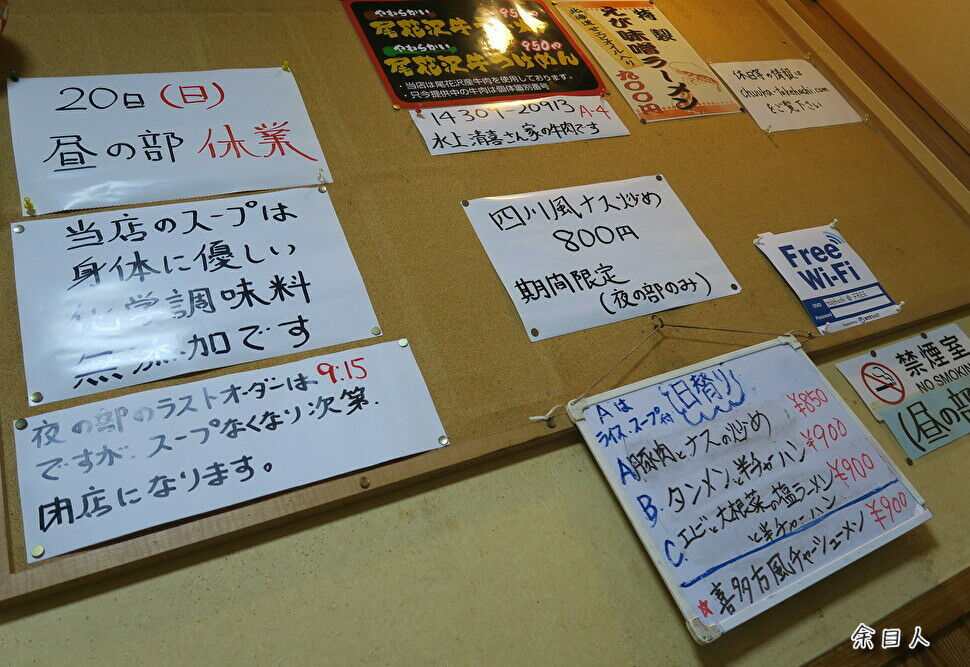 20日(日)
昼の部 休業
当店のスープは
身体に優しい
化学調味料
無添加です
夜の部のラストオーダーは9:15
ですが、スープなくなり次第、
閉店になります。
やわらかい
やわらかい
尾花沢牛つけめん
950円
・当店は尾花沢産牛肉を使用しております。
・只今提供中の牛肉は個体識別番号
14307-20913 A-4
水上清喜さん家の牛肉です
特製
えび味噌ラーメン
九〇〇円
休日等の情報は
をご覧下さい
四川風ナス炒め
800円
期間限定
(夜の部のみ)
Free
Wi-Fi
禁煙室
NO SMOKING
(昼の部
Aは
ライス、スープ付
日替り
A 豚肉とナスの炒め ¥850
B. タンメンと半チャーハン ¥900
C. エビと大根菜の塩ラーメン
と半チャーハン ¥900
☆喜多方風チャーシューメン ¥900
余目人